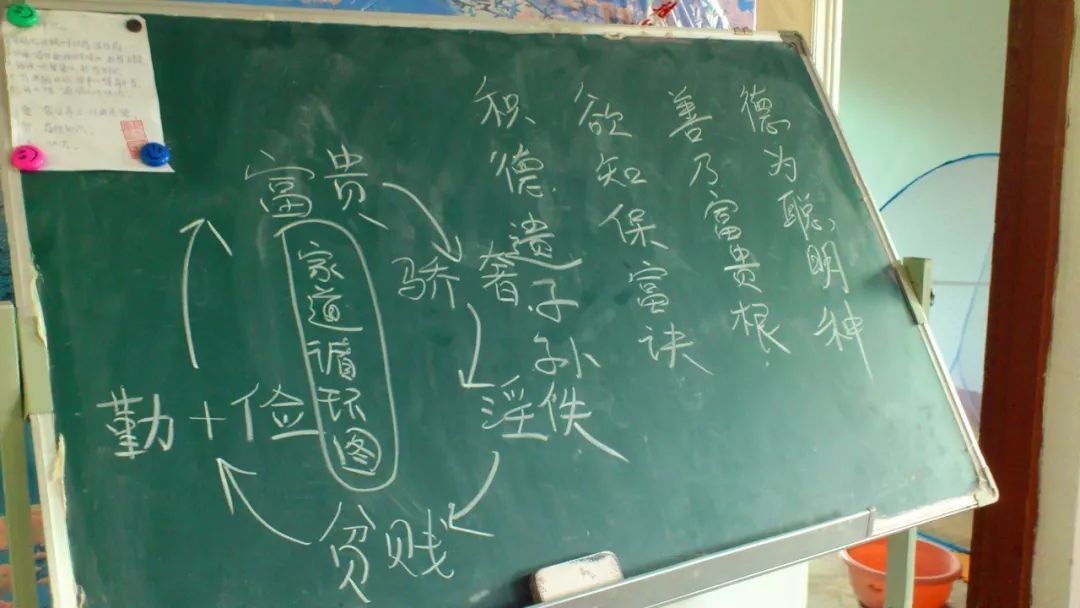 德为聪明种
善乃富贵根
欲知保富诀
积德遗子孙
富贵
骄奢
淫佚
贫贱
勤+俭
家道循环图